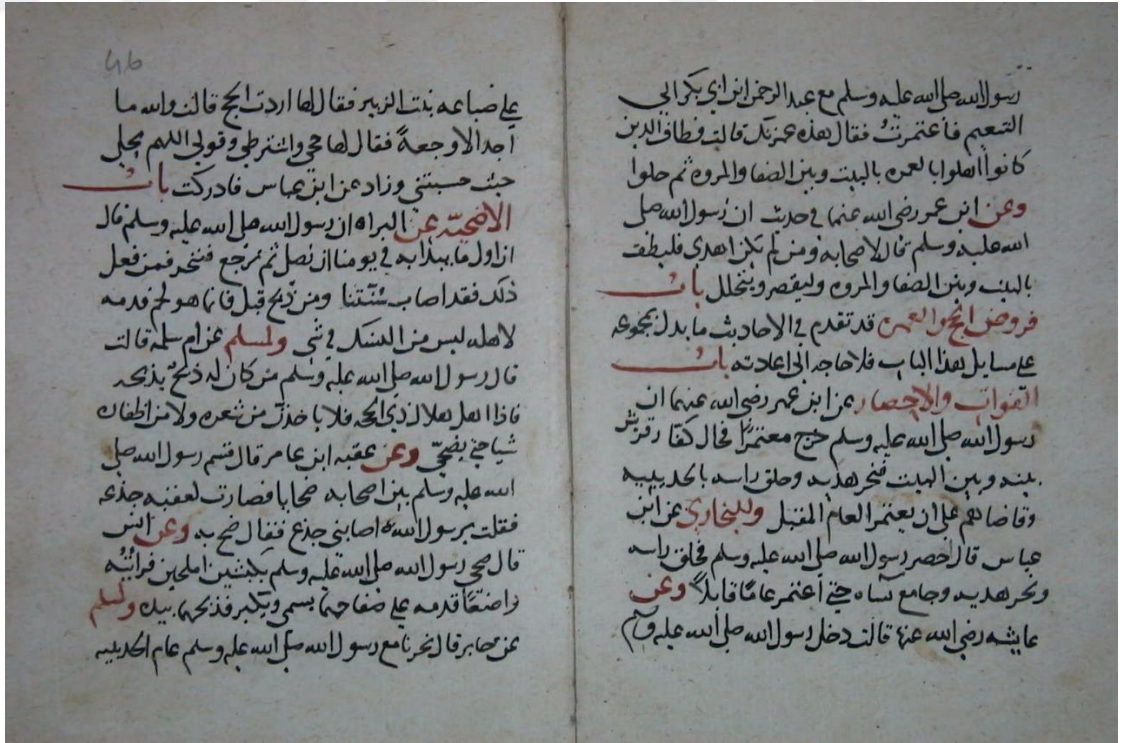 رسول الله صلى الله عليه وسلم مع عبد الرحمن ابن ابي بكر الى
التنعيم فاعتمرتُ فقال هذه عمرتك قالت فطاف الذين
كانوا اهلوا بالعمره بالبيت وبين الصفا والمروه ثم حلوا
وعن ابن عمر رضي الله عنهما في حديث ان رسول الله صلى
الله عليه وسلم قال لاصحابه ومن لم يكن اهدى فليطف
بالبيت وبين الصفا والمروه وليقصر ويتحلل باب
فروض الحج والعمره قد تقدم في الاحاديث ما يدل بمجموعه
على مسايل هذا الباب فلا حاجه الى اعادته باب
الفوات والاحصار عن ابن عمر رضي الله عنهما ان
رسول الله صلى الله عليه وسلم خرج معتمرًا فحال كفار قريش
بينه وبين البيت فنحر هديه وحلق راسه بالحديبيه
وقاضاهم على ان يعتمر العام المقبل وللبخاري عن ابن
عباس قال احصر رسول الله صلى الله عليه وسلم فحلق راسه
ونحر هديه وجامع نساه حتى اعتمر عامًا قابلًا وعن
عايشه رضي الله عنها قالت دخل رسول الله صلى الله عليه وسلم
46
على ضباعه بنت الزبير فقال لها اردت الحج قالت والله ما
اجد الا وجعةً فقال لها حجي واشترطي وقولي اللهم محلي
حيث حبستني وزاد عن ابن عباس فادركت باب
الاضحيّه عن البراء ان رسول الله صلى الله عليه وسلم قال
ان اول ما يبدا به في يومنا ان نصلي ثم نرجع فننحر فمن فعل
ذلك فقد اصاب سُنّتنا ومن ذبح قبل فانما هو لحم قدمه
لاهله ليس من النسك في شي ولمسلم عن ام سلمه قالت
قال رسول الله صلى الله عليه وسلم من كان له ذبح يذبحه
فاذا اهل هلال ذي الحجه فلا ياخذن من شعره ولا من اظفاره
شيا حتى يضحيّ وعن عقبه ابن عامر قال قسم رسول الله صلى
الله عليه وسلم بين اصحابه ضحايا فصارت لعقبه جذعه
فقلت يرسول الله اصابني جذع فقال ضح به وعن انس
قال ضحى رسول الله صلى الله عليه وسلم بكبشين املحين فرايتُه
واضعًا قدمه على صفاحهما يسمي ويكبر فذبحهما بيده ولمسلم
عن جابر قال نحرنا مع رسول الله صلى الله عليه وسلم عام الحديبيه